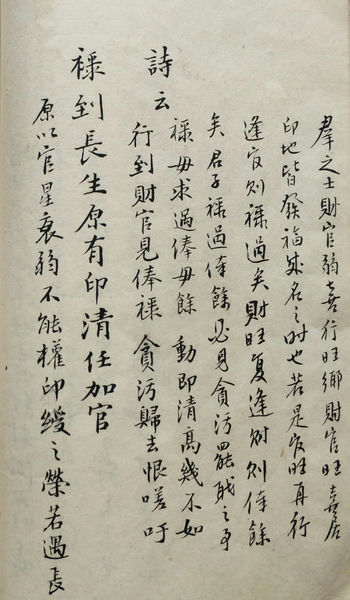 羣之士財官弱喜行旺鄉財官旺喜居
印地皆發福成名之时也若是官旺再行
逢官则祿過矣財旺复逢財则俸餘
矣君子祿過俸餘必見貪污罷职之事
祿毋求過俸毋餘 動即清高幾不如
行到財官見俸祿 貪污歸去恨嗟吁
詩云
祿到長生原有印清任加官
原以官星衰弱不能權印綬之榮若遇長